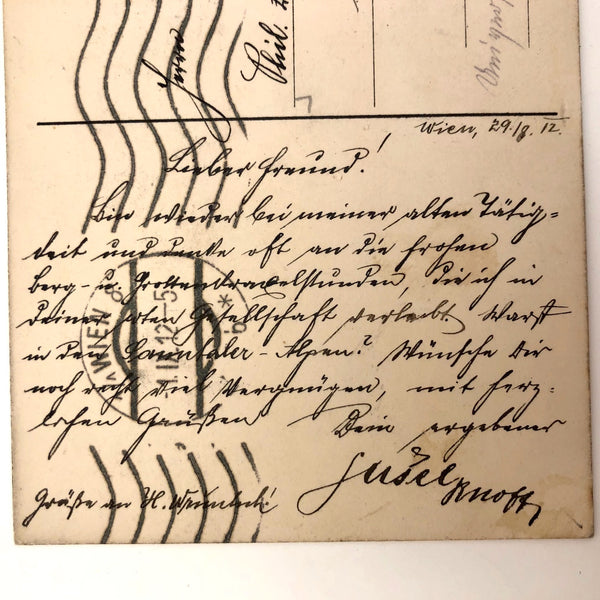 Herrn
Phil.
Wien, 29./8. 12.
Lieber Freund!
Bin wieder bei meiner alten Tätig=
keit und denke oft an die frohen
Berg- u. Grottenkraxelstunden, die ich in
deiner Gesellschaft verlebt. Warst
in den Sanntaler-Alpen? Wünsche Dir
noch recht viel Vergnügen, mit herz=
lichen Grüßen Dein ergebener
Grüße an H.
WIEN
1.IX.12-5